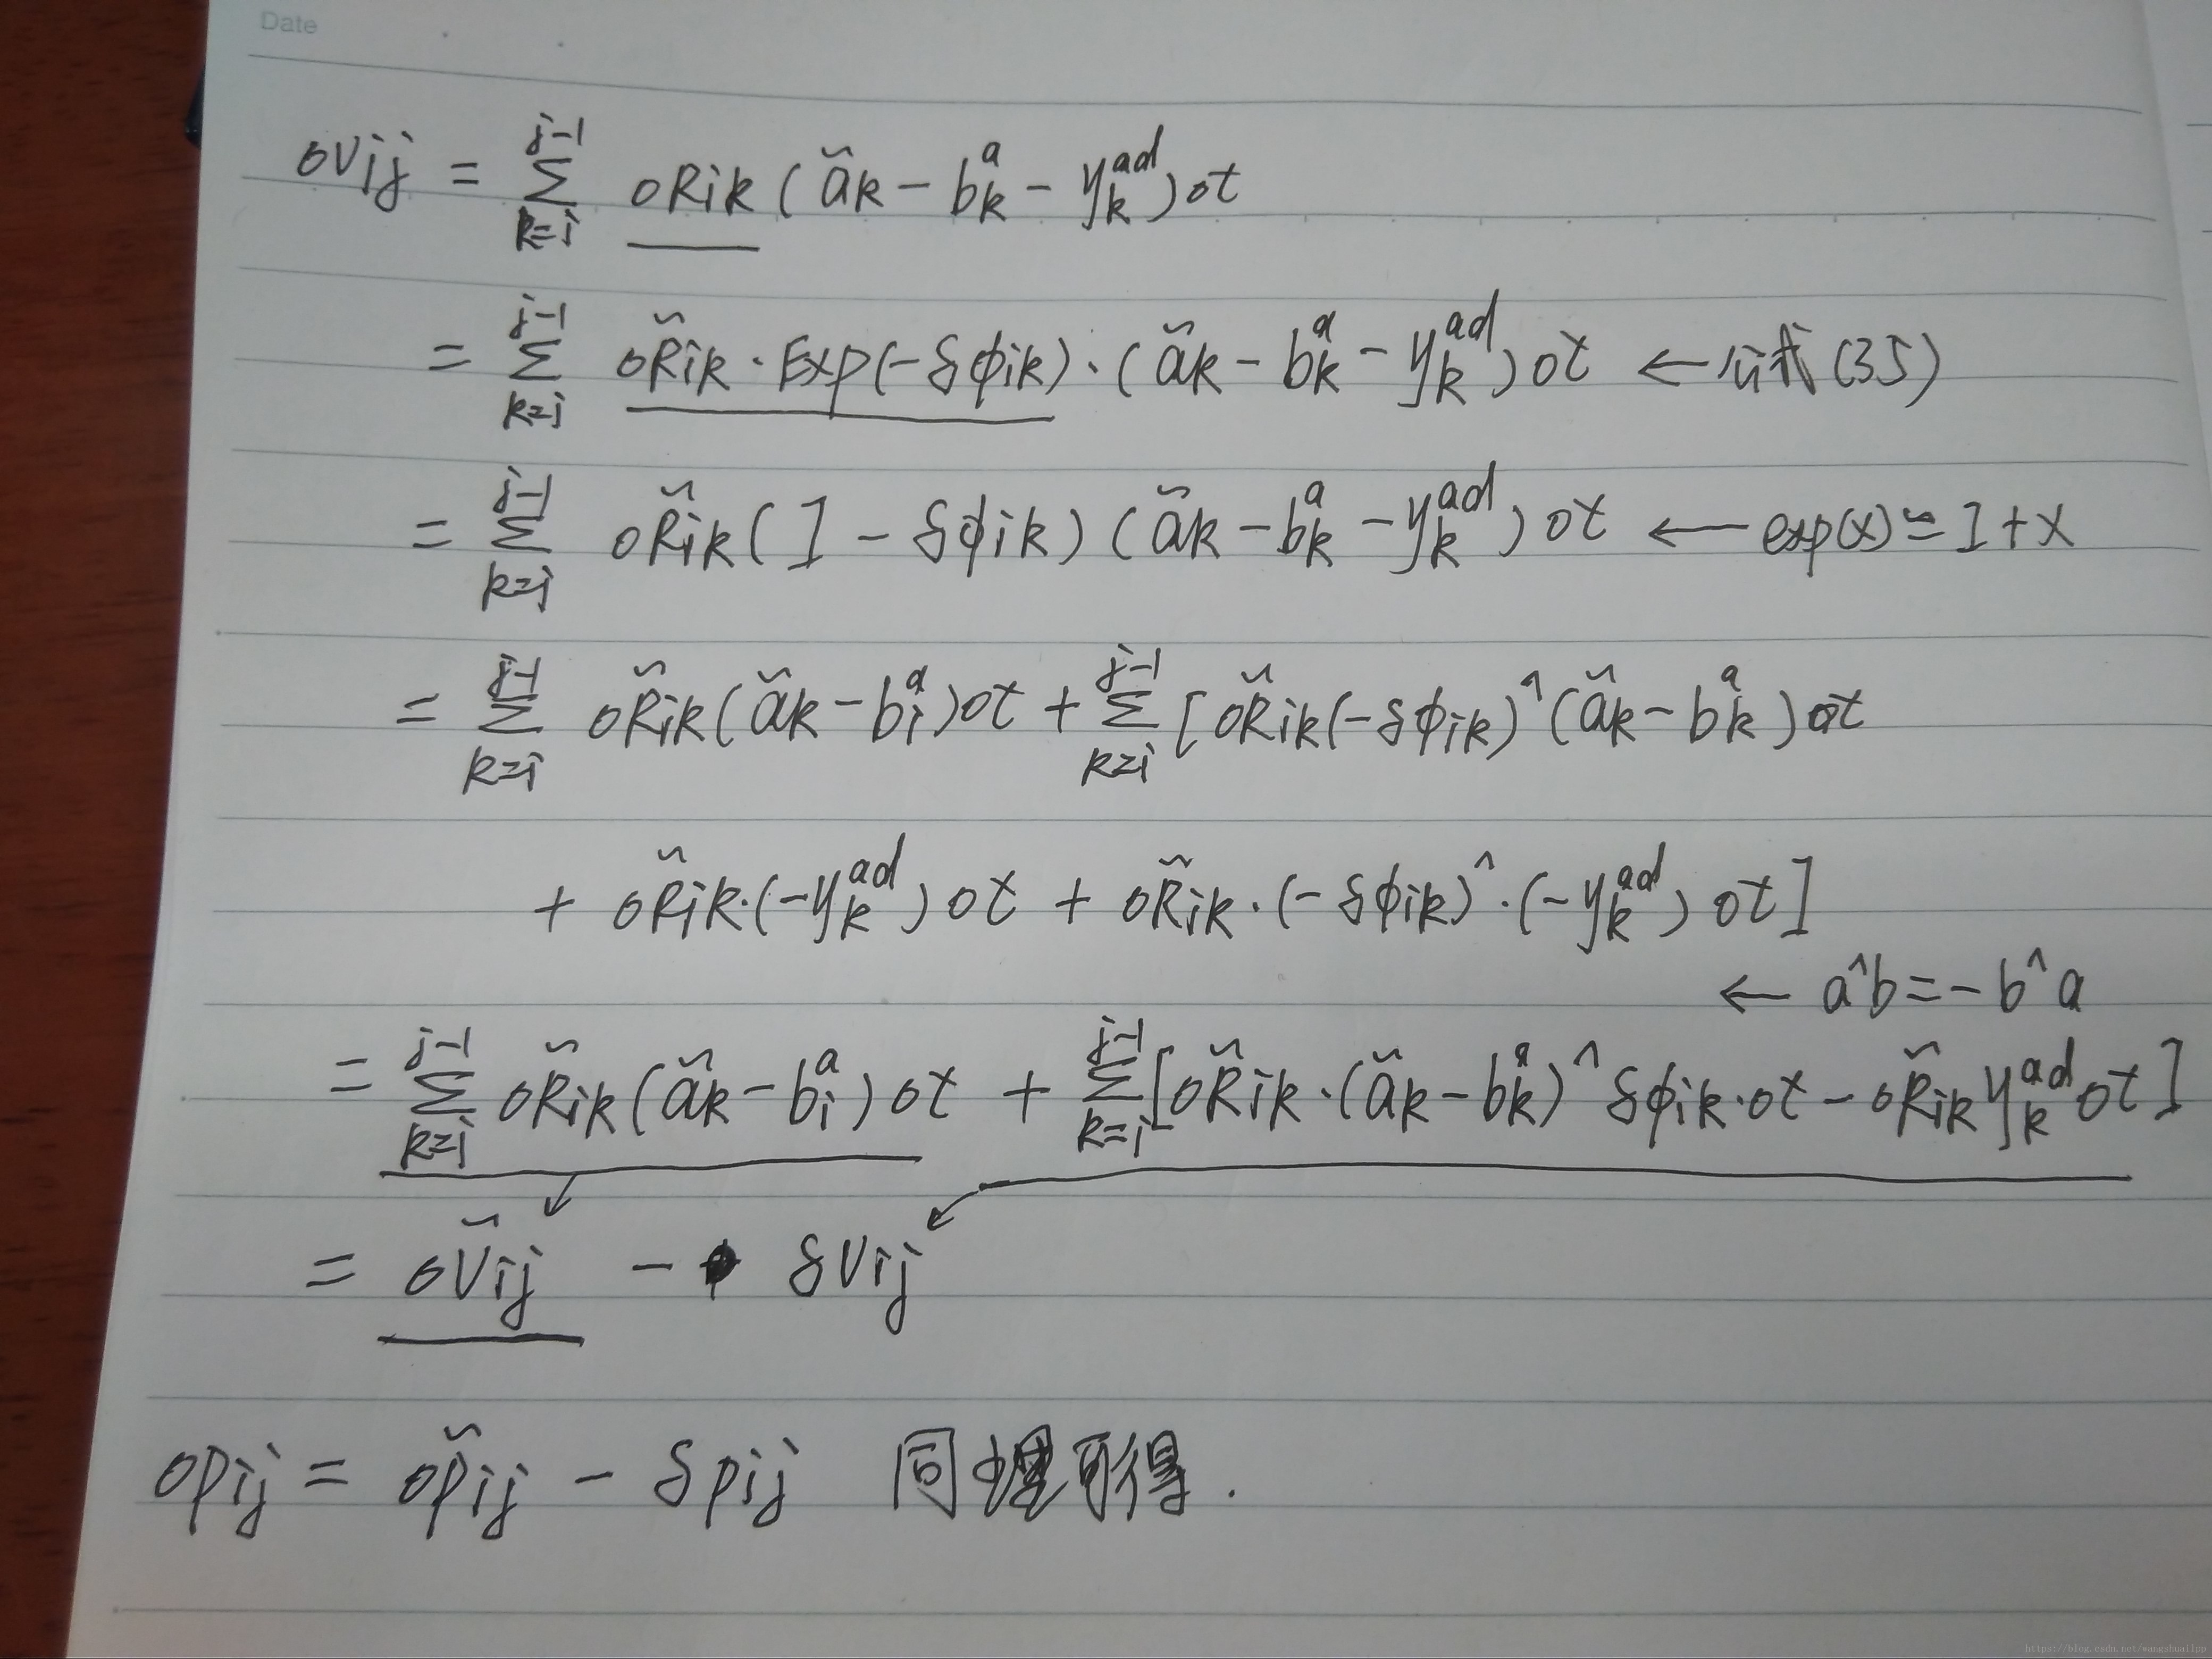 Date
ovij = Σ_{k=i}^{j-1} oRik (ãk - b_k^a - y_k^{ad}) ot
= Σ_{k=i}^{j-1} oR̃ik · Exp(-δϕik) · (ãk - b_k^a - y_k^{ad}) ot ← 公式 (35)
= Σ_{k=i}^{j-1} oR̃ik (I - δϕik) (ãk - b_k^a - y_k^{ad}) ot ← exp(x) ≃ I + x
= Σ_{k=i}^{j-1} oR̃ik (ãk - b_i^a) ot + Σ_{k=i}^{j-1} [oR̃ik (-δϕik)^ (ãk - b_k^a) ot
+ oR̃ik · (-y_k^{ad}) ot + oR̃ik · (-δϕik)^ · (-y_k^{ad}) ot]
← a^b = -b^a
= Σ_{k=i}^{j-1} oR̃ik (ãk - b_i^a) ot + Σ_{k=i}^{j-1} [oR̃ik · (ãk - b_k^a)^ δϕik · ot - oR̃ik y_k^{ad} ot]
= oṽij - δvij
opij = op̃ij - δpij 同理可得.
https://blog.csdn.net/wangshuailpp